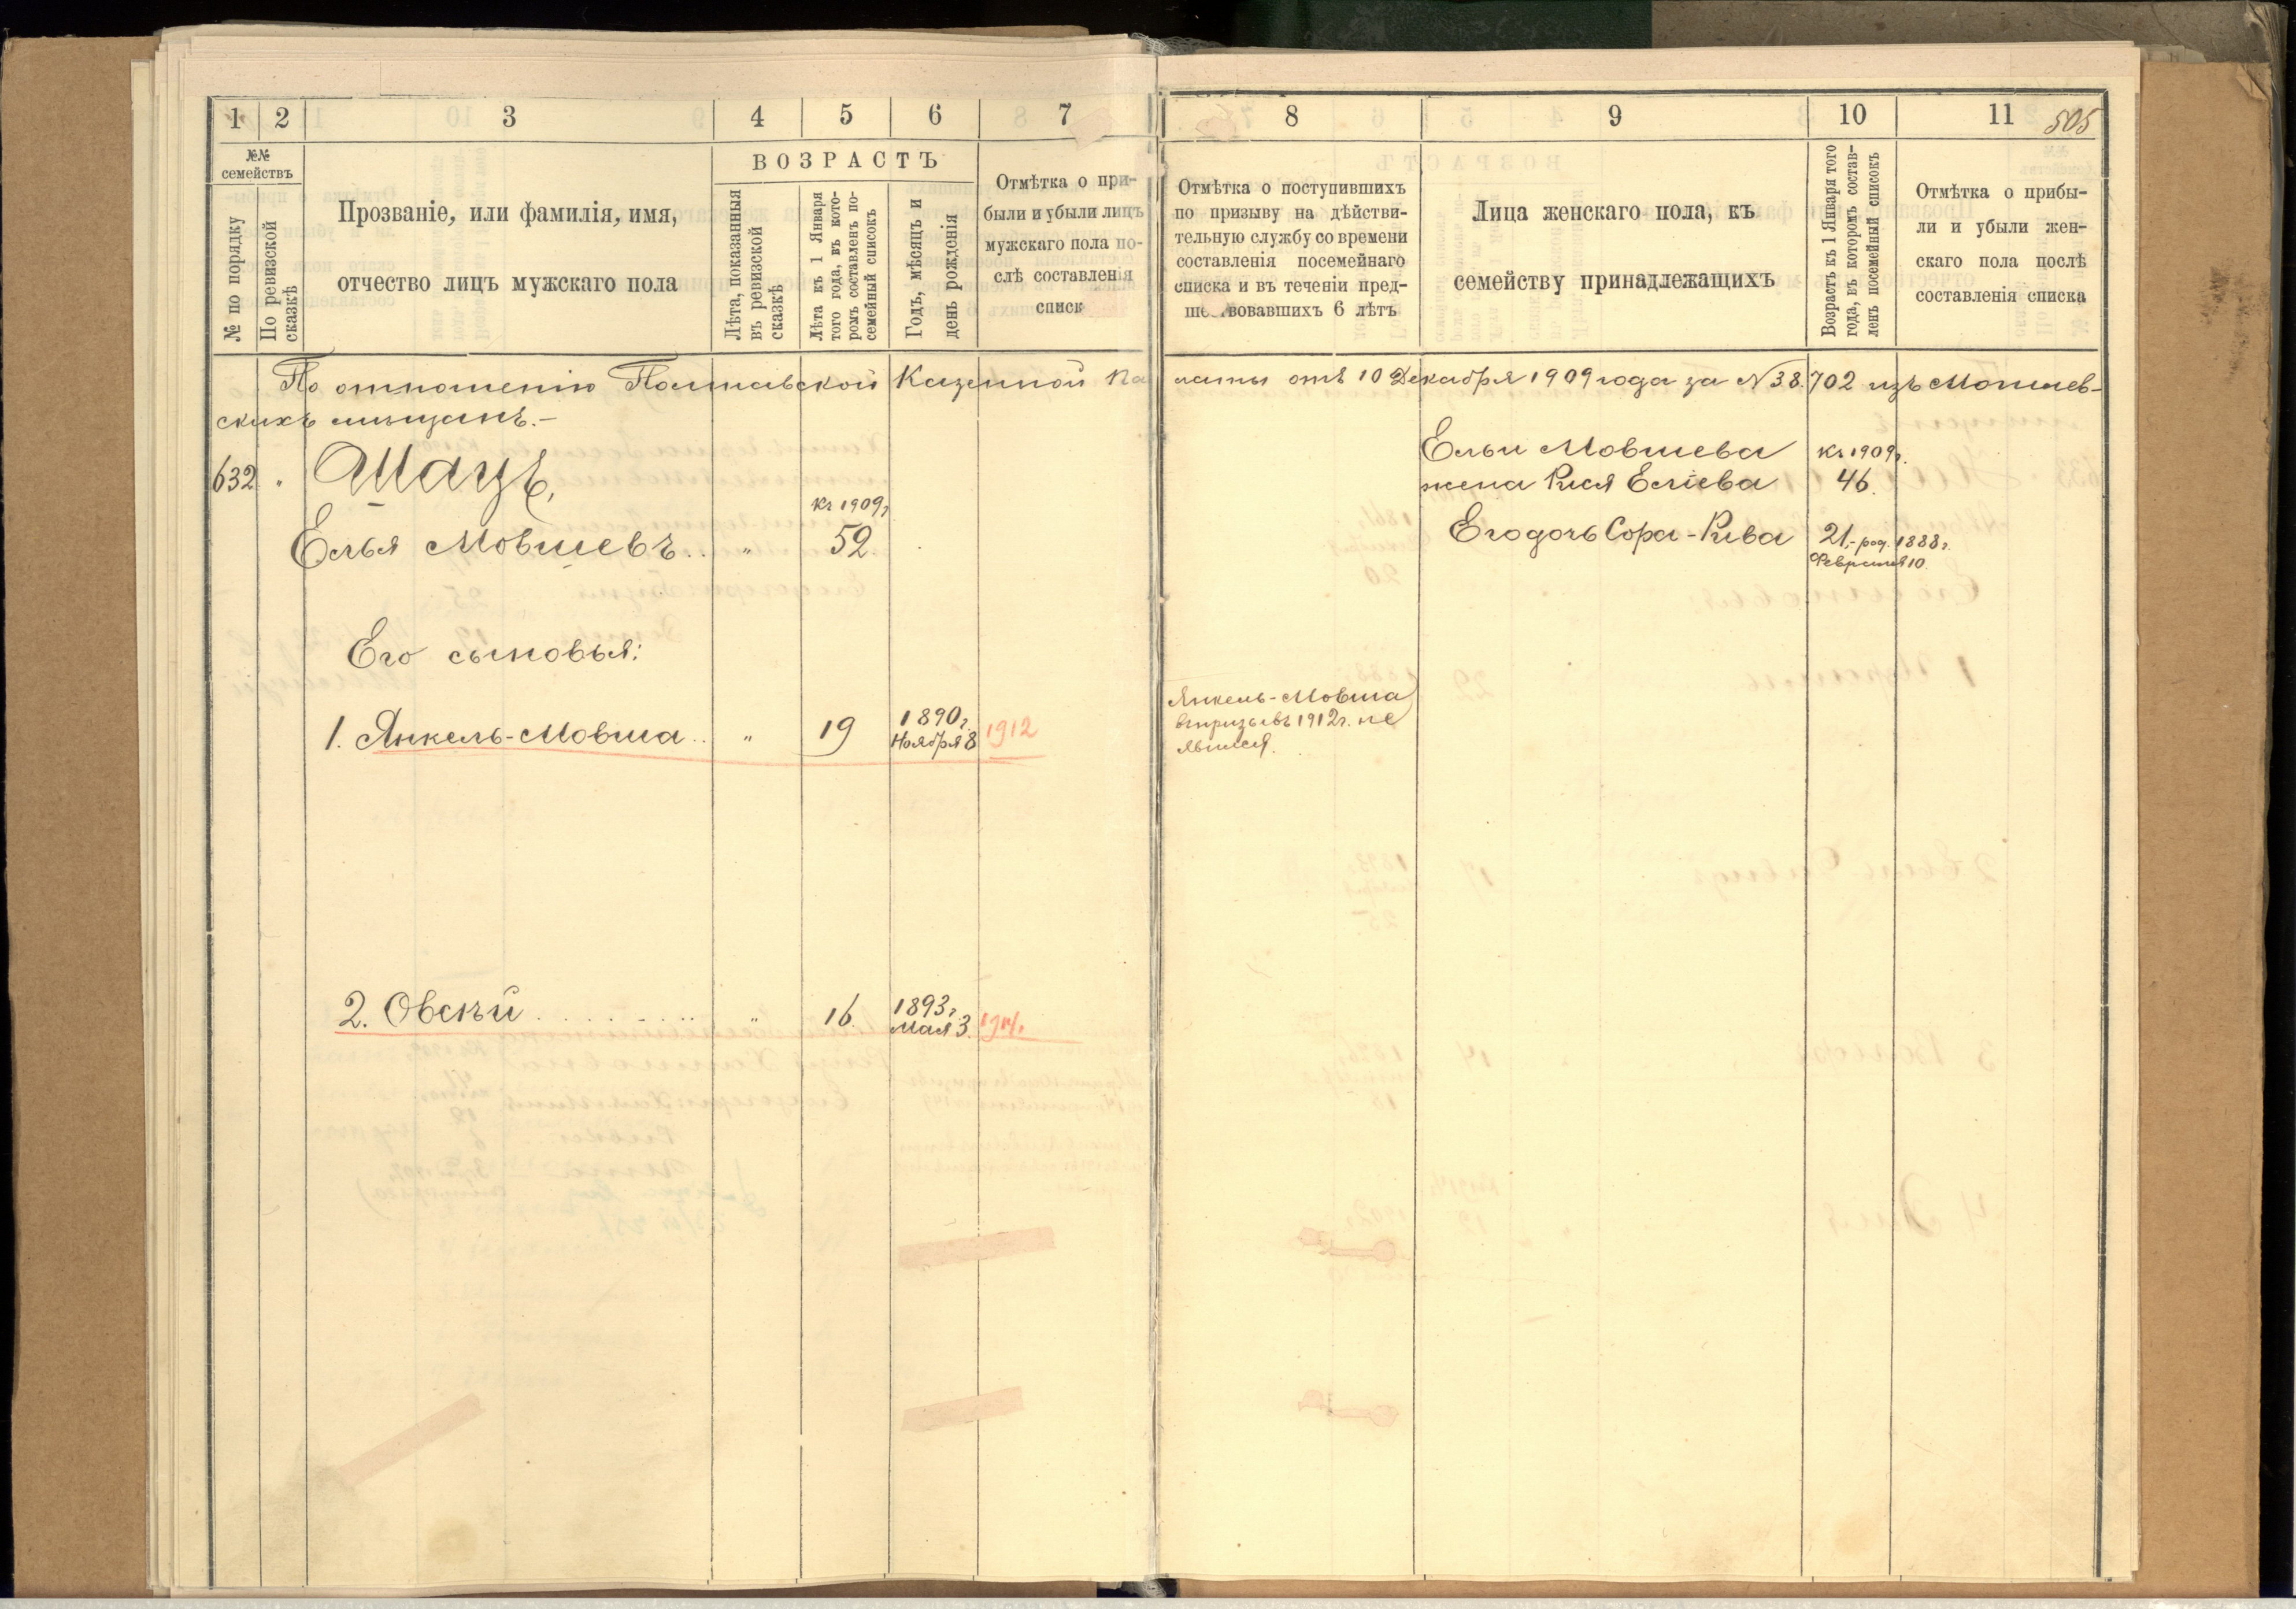 1 2 3 4 5 6 7 8 9 10 11 505
№№ семействъ
№ по порядку
По ревизской сказкѣ
Прозваніе, или фамилія, имя,
отчество лицъ мужскаго пола
ВОЗРАСТЪ
Лѣта, показанныя
въ ревизской
сказкѣ
Лѣта къ 1 Января
того года, въ кото-
ромъ составленъ по-
семейный списокъ
Годъ, мѣсяцъ и
день рожденія
Отмѣтка о при-
были и убыли лицъ
мужскаго пола по-
слѣ составленія
списк
Отмѣтка о поступившихъ
по призыву на дѣйстви-
тельную службу со времени
составленія посемейнаго
списка и въ теченіи пред-
шествовавшихъ 6 лѣтъ
Лица женскаго пола, къ
семейству принадлежащихъ
Возрастъ къ 1 Января того
года, въ которомъ состав-
ленъ посемейный списокъ
Отмѣтка о прибы-
ли и убыли жен-
скаго пола послѣ
составленія списка
По отношенію Полтавской Казенной Па латы отъ 10 Декабря 1909 года за N 38.702 изъ Могилев-
скихъ мѣщанъ.-
632 " Шацъ,
Елья Мовшевъ.. " къ 1909г 52.
Его сыновья:
1. Янкель-Мовша.. " 19 1890г. Ноября 8 1912
2. Овсѣй " 16. 1893г. Мая 3. 1914.
Янкель-Мовша
въ призывъ 1912г. не
явился.
Ельи Мовшева къ 1909г.
жена Рися Еліева 46.
Его дочь Сора-Рива 21,- род. 1888г.
Февраля 10.